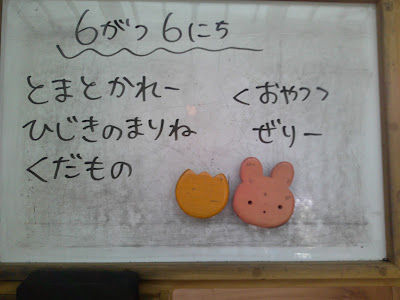 6がつ6にち
とまとかれー
ひじきのまりね
くだもの
くおやつつ
ぜりー